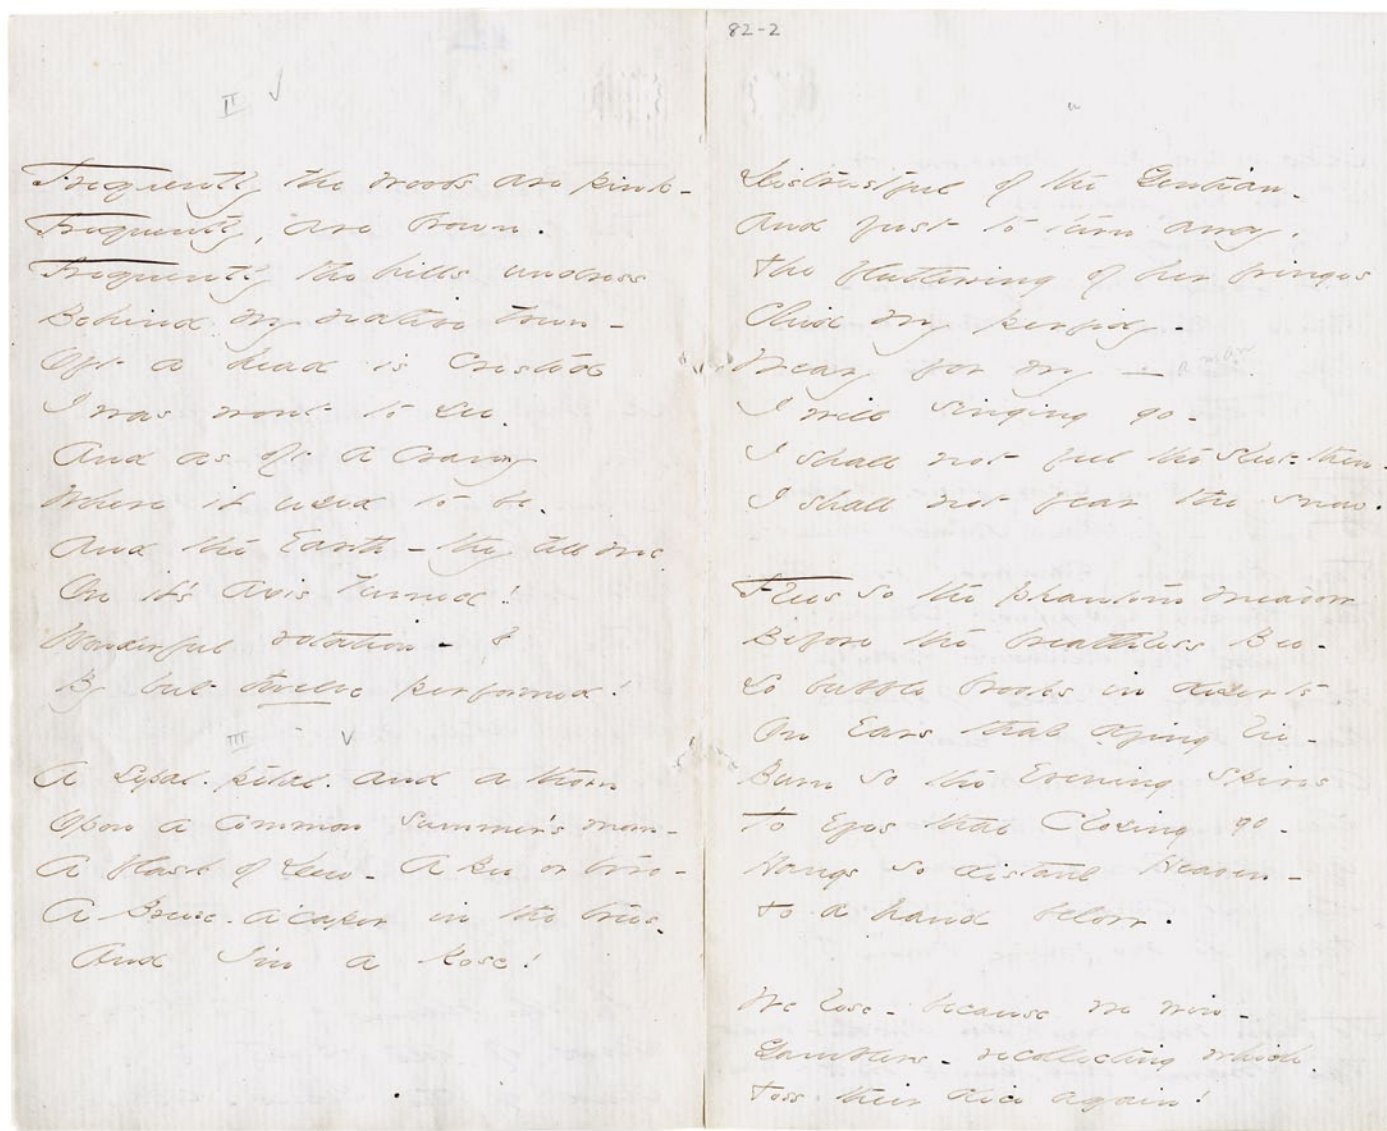 II ✓
Frequently the woods are pink -
Frequently, are brown.
Frequently the hills undress
Behind my native town -
Oft a head is crested
I was wont to see.
And as oft a cranny
Where it used to be.
And the Earth - they tell me
On it's Axis turned!
Wonderful rotation -
By but twelve performed!
III ✓
A sepal. petal. and a thorn
Upon a common summer's morn -
A flask of Dew - A Bee or two -
A Breeze. a'caper in the trees.
And I'm a Rose!
82-2
Distrustful of the Gentian.
And just to turn away.
The fluttering of her fringes
Chid my perfidy -
Weary for my —
I will singing go -
I shall not feel the sleet - then -
I shall not fear the snow.
Flees so the phantom meadow
Before the breathless Bee -
So bubble brooks in deserts
On Ears that dying lie -
Burn so the Evening Spires
To Eyes that Closing go -
Hangs so distant Heaven -
To a hand below.
We lose - because we win -
Gamblers - recollecting which
Toss their dice again!